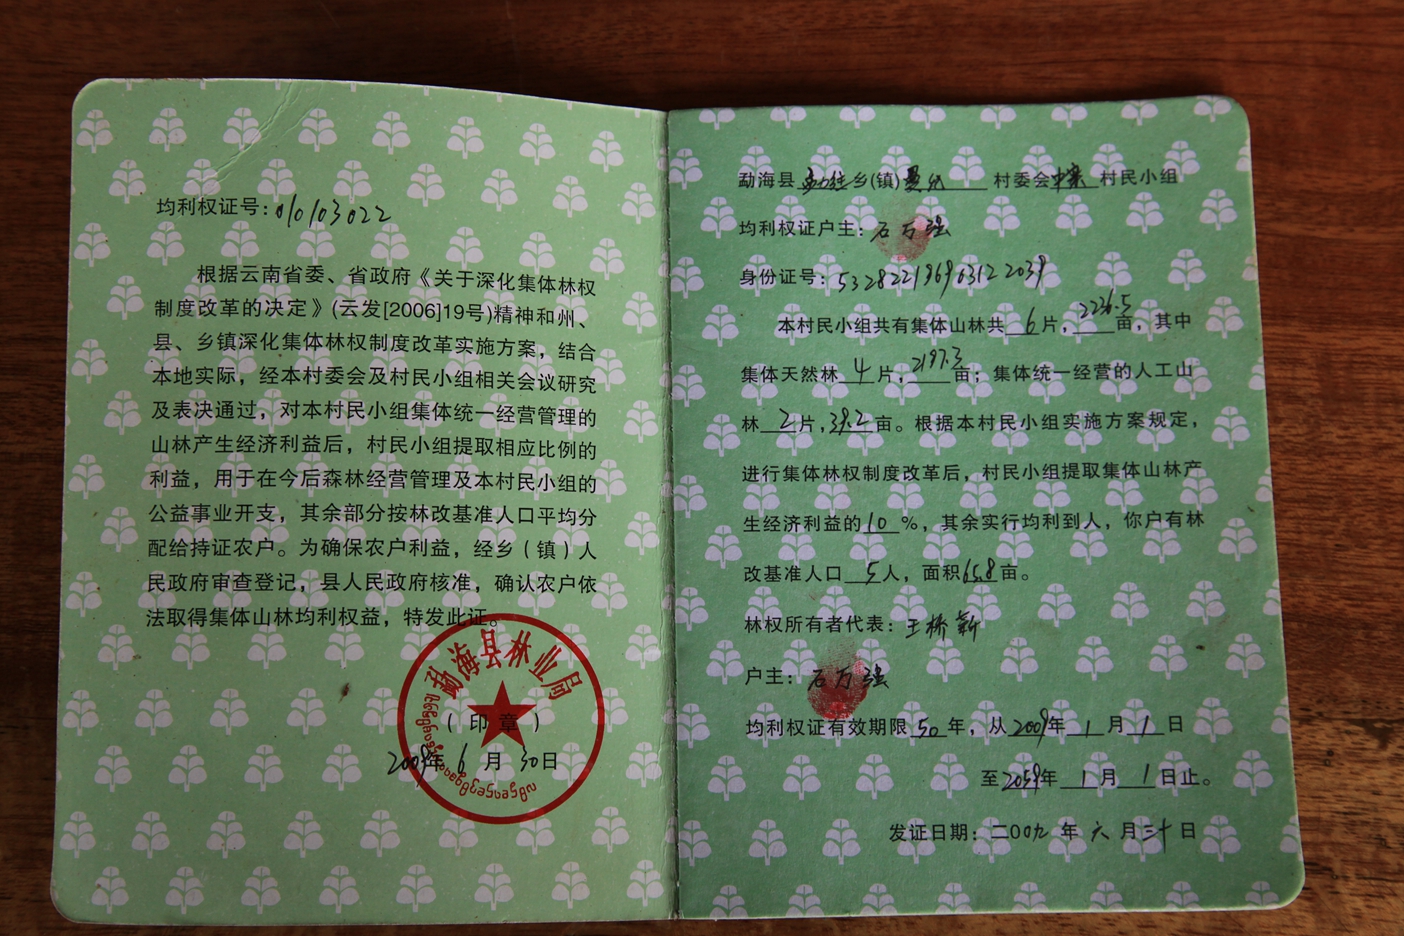 均利权证号:010103022
根据云南省委、省政府《关于深化集体林权
制度改革的决定》(云发[2006]19号)精神和州、
县、乡镇深化集体林权制度改革实施方案，结合
本地实际，经本村委会及村民小组相关会议研究
及表决通过，对本村民小组集体统一经营管理的
山林产生经济利益后，村民小组提取相应比例的
利益，用于在今后森林经营管理及本村民小组的
公益事业开支，其余部分按林改基准人口平均分
配给持证农户。为确保农户利益，经乡（镇）人
民政府审查登记，县人民政府核准，确认农户依
法取得集体山林均利权益，特发此证。
勐海县林业局
（印章）
2009年 6 月 30日
勐海县 乡(镇) 村委会中寨村民小组
均利权证户主：石万强
身份证号：532822196963122039
本村民小组共有集体山林共 6 片，2236.5亩，其中
集体天然林 4 片，2197.3亩；集体统一经营的人工山
林 2 片,39.2亩。根据本村民小组实施方案规定，
进行集体林权制度改革后，村民小组提取集体山林产
生经济利益的10%，其余实行均利到人，你户有林
改基准人口 5人，面积65.8亩。
林权所有者代表：王桥新
户主：石万强
均利权证有效期限50年，从2009年 1 月 1 日
至2059年 1 月 1 日止。
发证日期：二00九年 六 月 三十 日